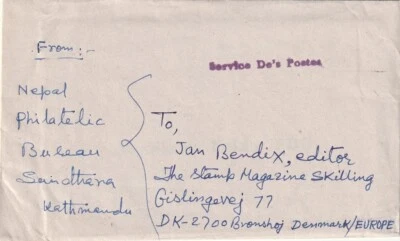 From:-
Nepal
Philatelic
Bureau
Sundhara
Kathmandu
Service De's Postes
To,
Jan Bendix, editor
The Stamp Magazine Skilling
Gislingevej 77
DK-2700 Bronshoj Denmark/EUROPE